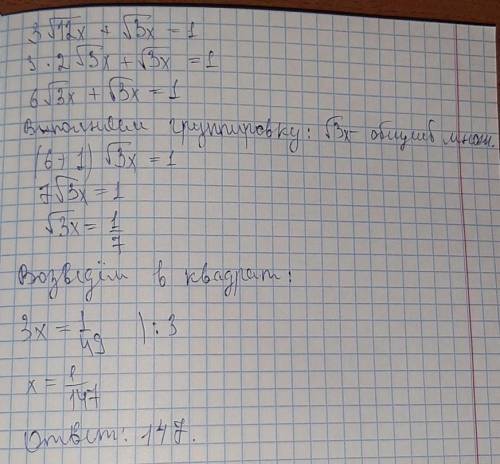 3√12x + √3x = 1
3·2√3x + √3x = 1
6√3x + √3x = 1
Выполняем группировку: √3x - общий множ.
(6+1)√3x = 1
7√3x = 1
√3x = 1/7
Возведём в квадрат:
3x = 1/49 | : 3
x = 1/147
Ответ: 147.